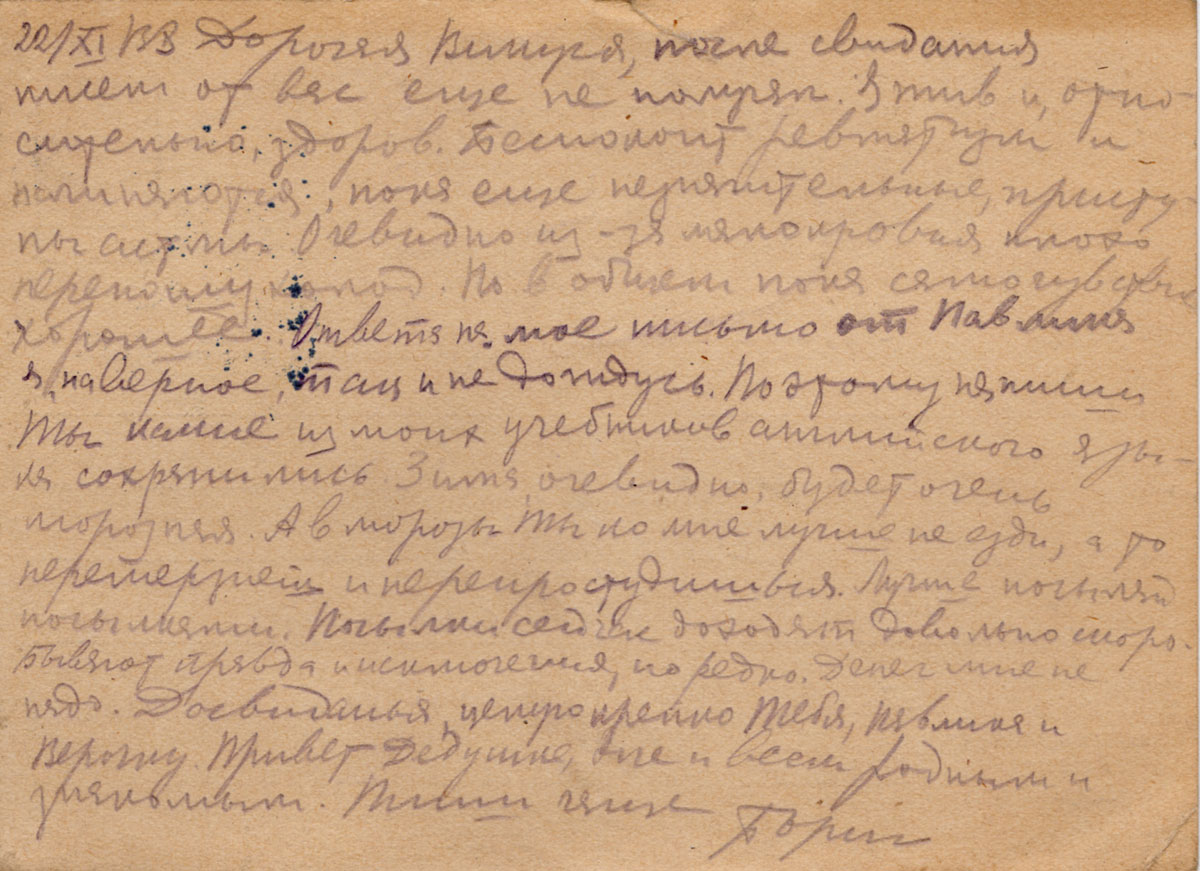 22/XI Дорогая Викуся, после свидания
писем от вас еще не получал. Я жив и, отно-
сительно, здоров. Беспокоит ревматизм и
начинаются, пока еще незначительные, присту-
пы астмы. Очевидно из-за малокровия плохо
переношу холод. Но в общем пока самочувствие
хорошее. Ответа на мое письмо от Павлика
я, наверное, так и не дождусь. Поэтому напиши
ты какие из моих учебников английского язы-
ка сохранились. Зима, очевидно, будет очень
морозная. А в морозы ты ко мне лучше не езди, а то
перемерзнешь и перепростудишься. Лучше посылай
посылками. Посылки сейчас доходят довольно скоро.
Бывают правда исключения, но редко. Денег мне не
надо. Досвиданья, целую крепко тебя, Павлика и
Верочку. Привет дедушке, и всем родным и
знакомым. Пиши чаще
Борис